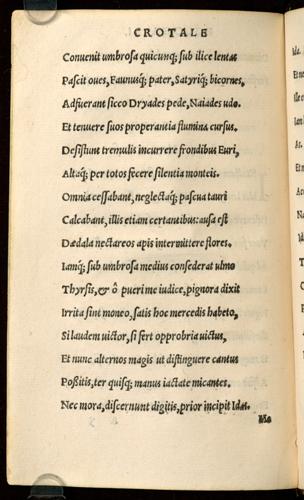 CROTALE
Convenit umbrosa quicunq; sub ilice lentas
Pascit oues, Faunusq; pater, Satyriq; bicornes,
Adfuerant sicco Dryades pede, Naiades udo.
Et tenuere suos properantia flumina cursus.
Desistunt tremulis incurrere frondibus Euri,
Altaq; per totos fecere silentia monteis.
Omnia cessabant, neglectaq; pascua tauri
Calcabant, illis etiam certantibus: ausa est
Dædala nectareos apis intermittere flores.
Iamq; sub umbrosa medius consederat ulmo
Thyrsis, & ô pueri me iudice, pignora dixit
Irrita sint moneo, satis hoc mercedis habeto,
Si laudem uictor, si fert opprobria uictus,
Et nunc alternos magis ut distinguere cantus
Poßitis, ter quisq; manus iactate micantes.
Nec mora, discernunt digitis, prior incipit Idas.